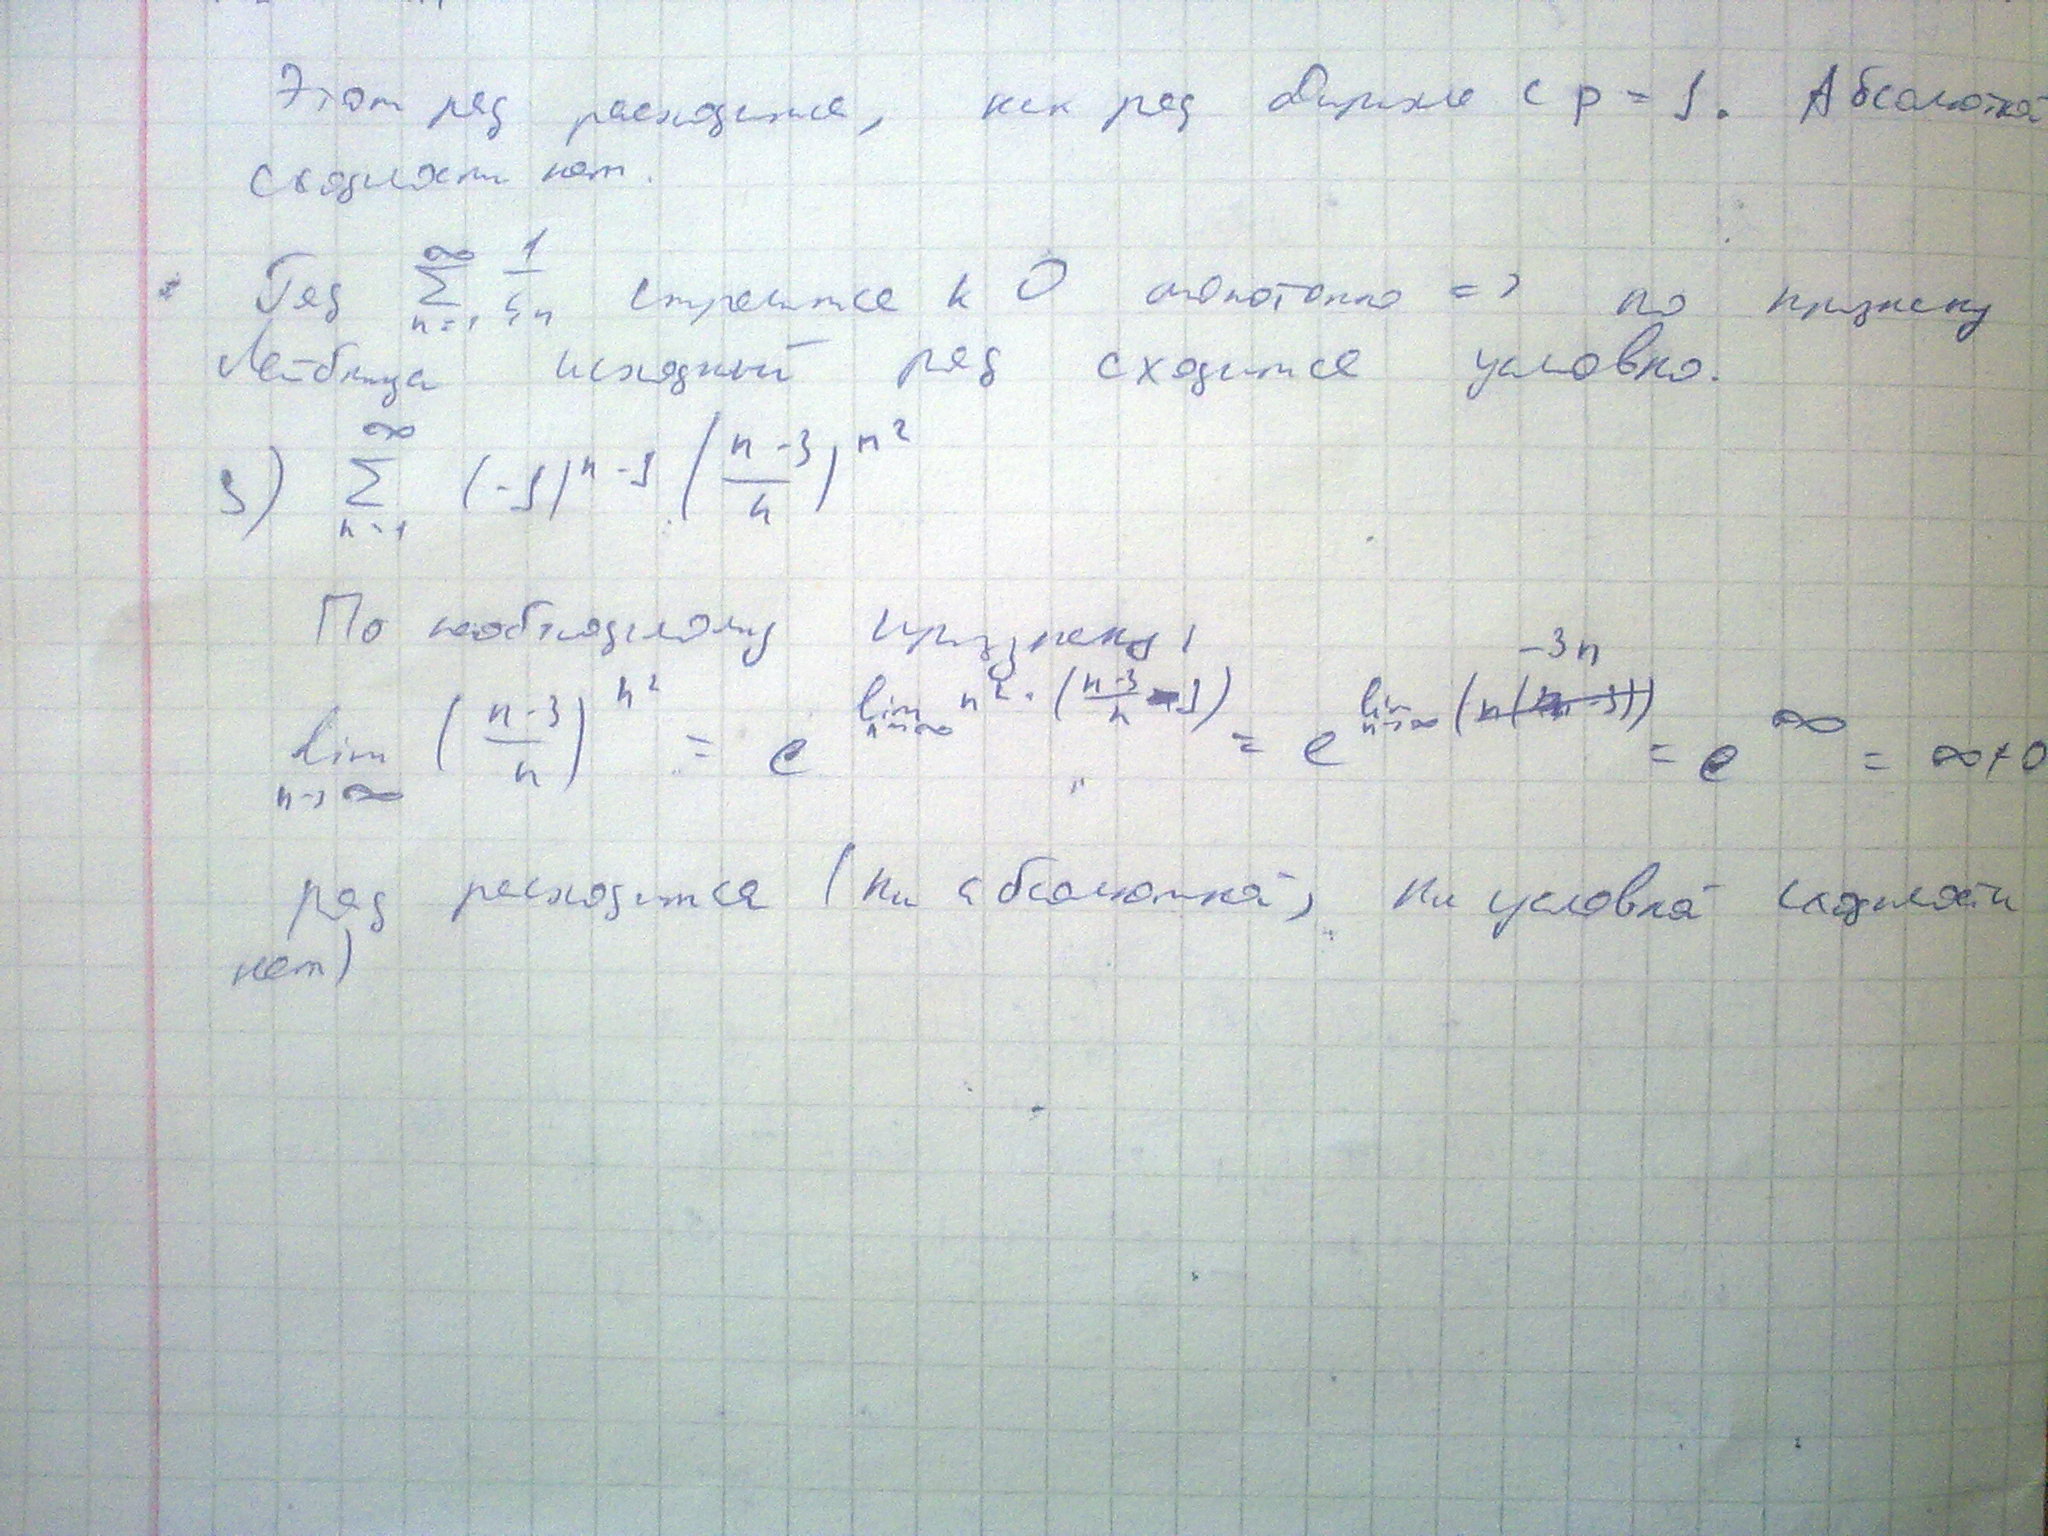 Этот ряд расходится, как ряд Дирихле с p = 1. Абсолютной
сходимости нет.
Ряд ∑_{n=1}^{∞} 1/5n стремится к 0 монотонно => по признаку
Лейбница исходный ряд сходится условно.
3) ∑_{n=1}^{∞} (-1)^{n-1} ((n-3)/n)^{n^2}
По необходимому признаку,
lim_{n→∞} ((n-3)/n)^{n^2} = e^{lim_{n→∞} n^2·((n-3)/n - 1)} = e^{lim_{n→∞} (-3n)} = e^{∞} = ∞ ≠ 0
ряд расходится (ни абсолютной, ни условной сходимости
нет)